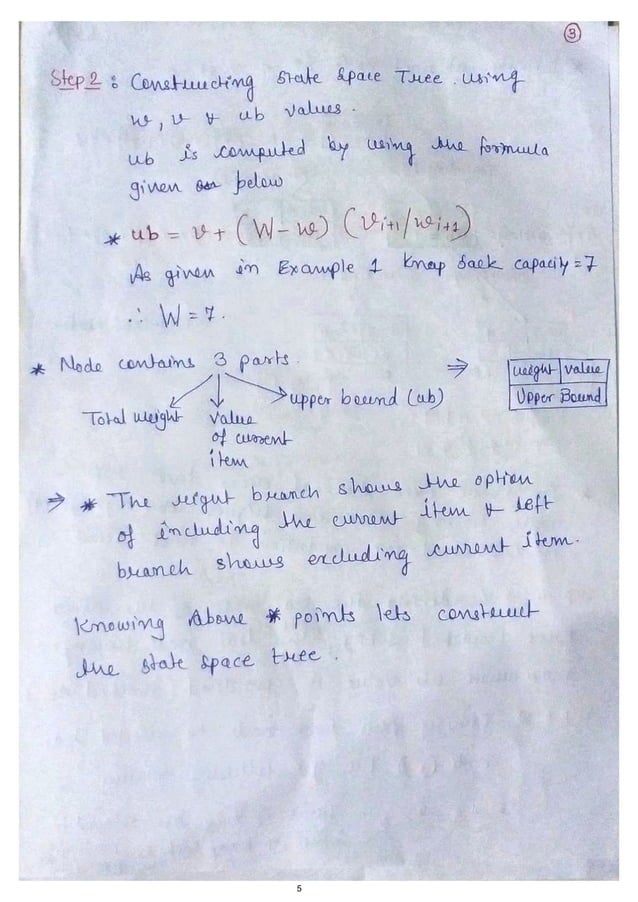 3
Step 2 : Constructing State Space Tree. using
w, v & ub values.
ub is computed by using the formula
given below
* ub = v + (W - w) (vi+1/wi+1)
As given in Example 1 Knap Sack capacity = 7
∴ W = 7.
* Node contains 3 parts. ⇒
weight | value
Upper Bound
Total weight value of current item upper bound (ub)
⇒ * The right branch shows the option
of including the current item & left
branch shows excluding current item.
Knowing Above * points lets construct
the state space tree.
5